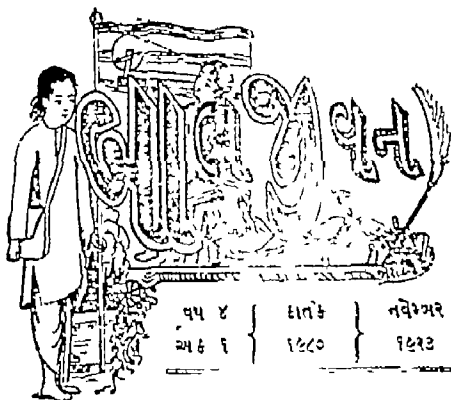 બાલજીવન
વર્ષ ૪ કાર્તક નવેમ્બર
અંક ૧ ૧૯૮૦ ૧૯૨૩